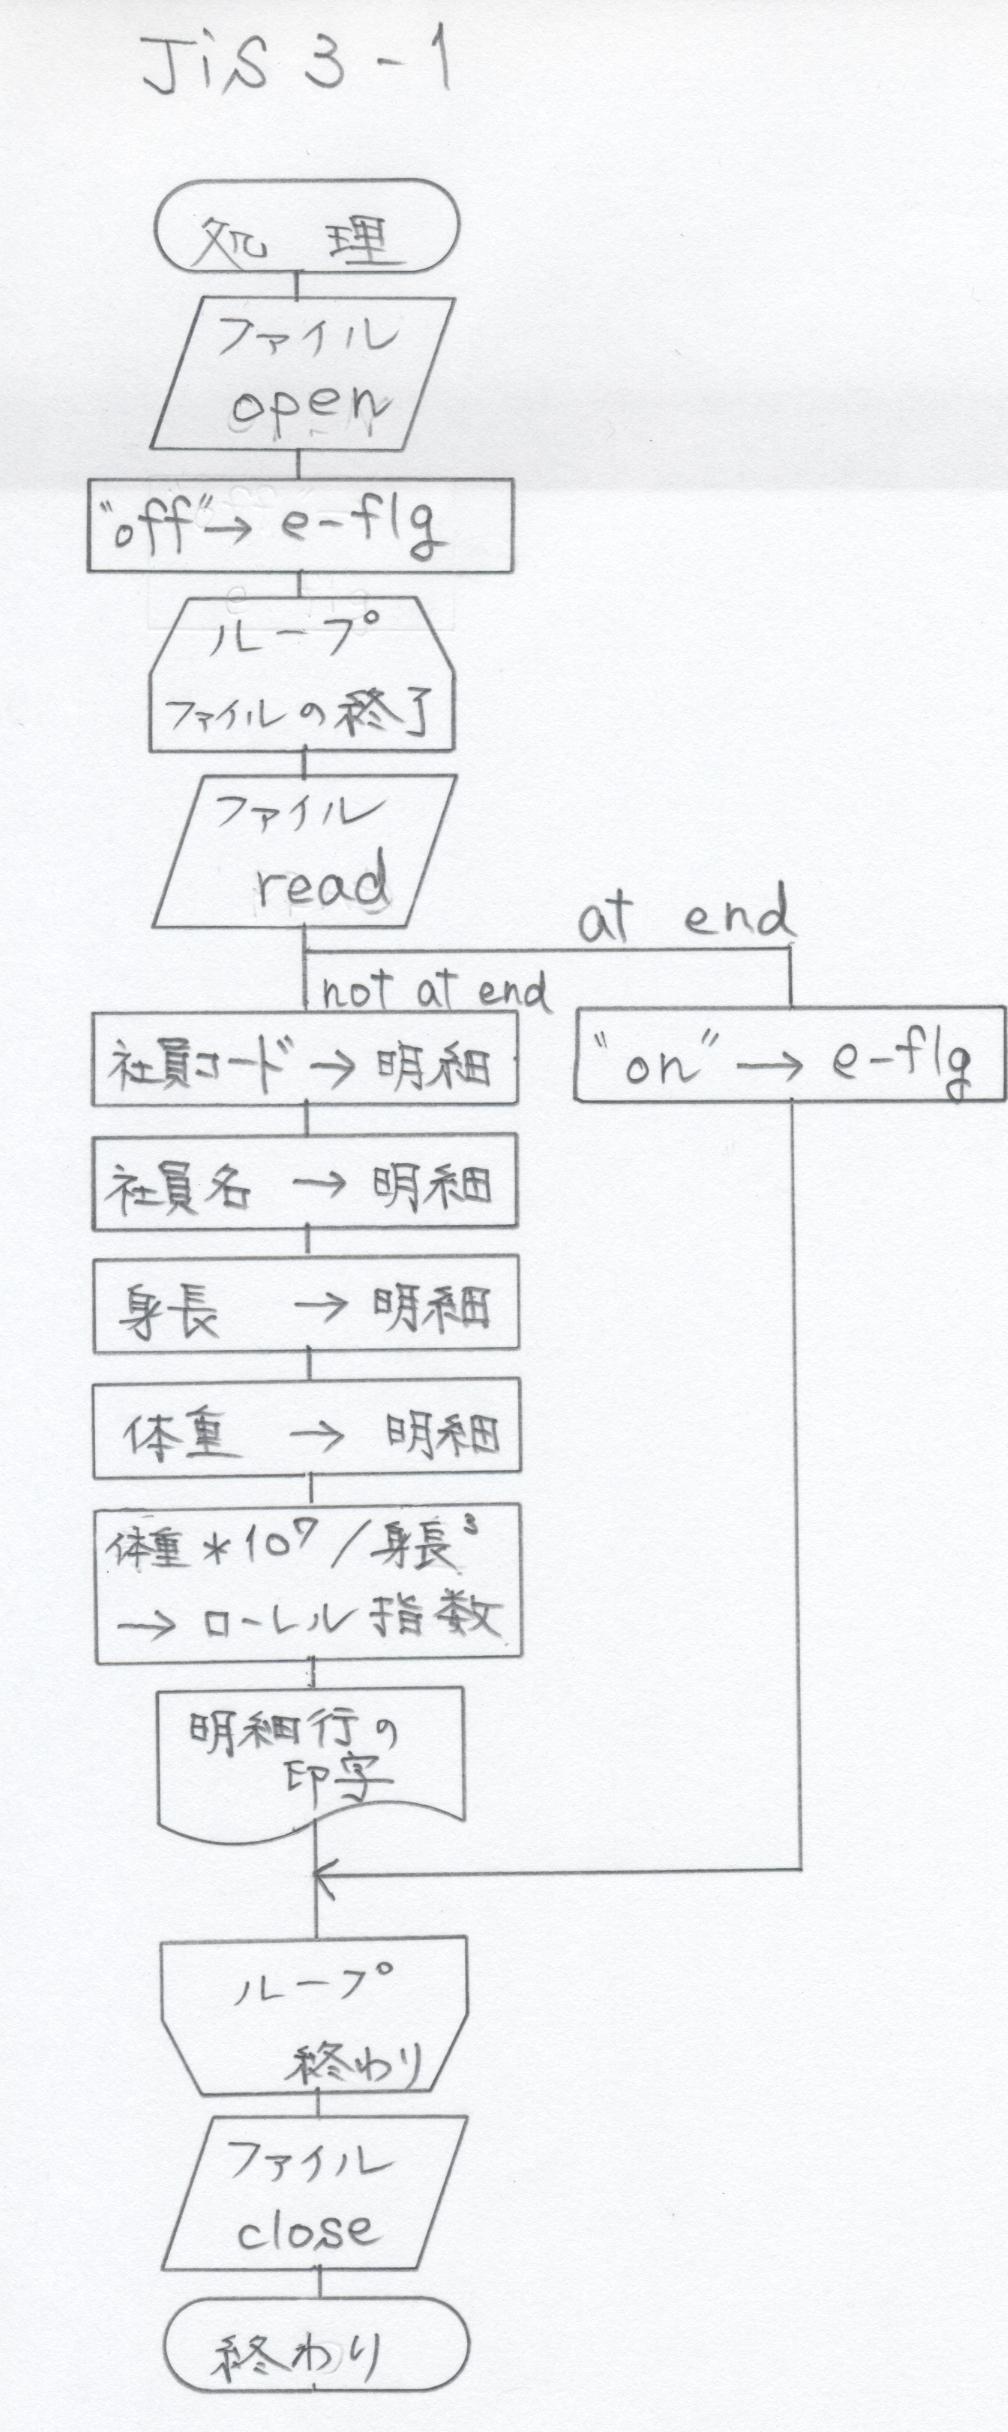 JiS 3-1
処 理
ファイル
open
"off"→ e-flg
ループ
ファイルの終了
ファイル
read
at end
not at end
社員コード → 明細
"on" → e-flg
社員名 → 明細
身長 → 明細
体重 → 明細
体重 * 10⁷ / 身長³
→ ローレル指数
明細行の
印字
ループ
終わり
ファイル
close
終わり